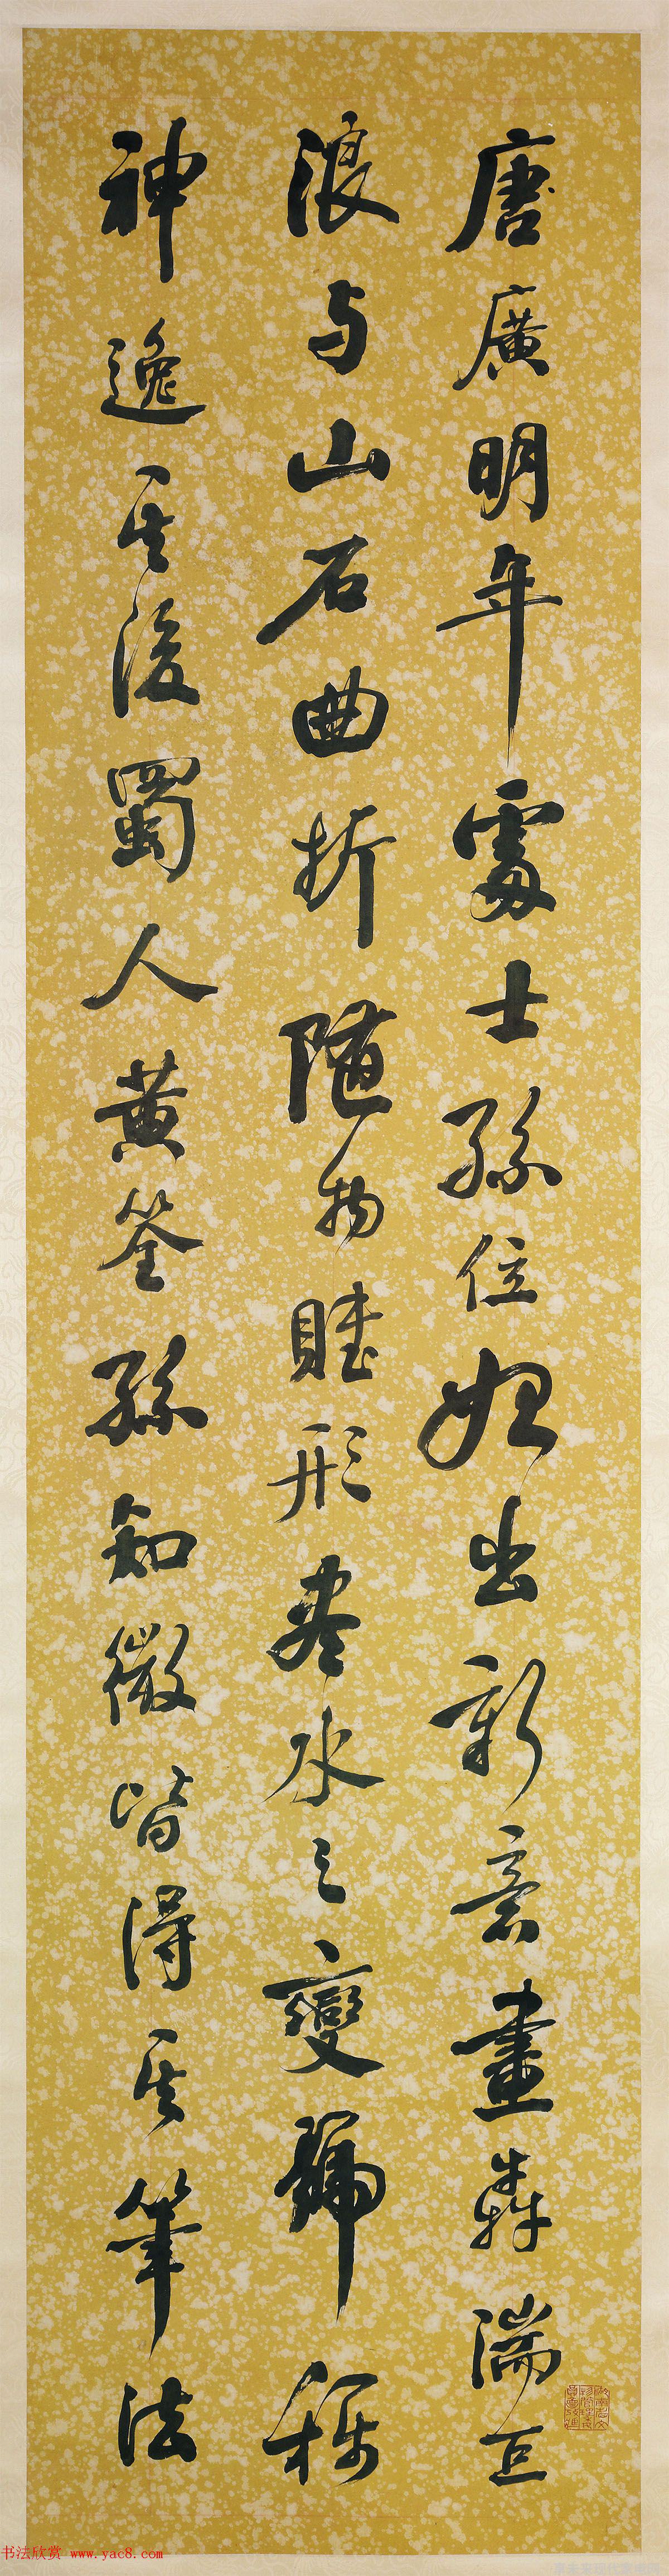 唐廣明年處士孫位始出新意畫奔湍巨
浪与山石曲折随物賦形盡水之變號稱
神逸其後蜀人黄筌孫知微皆得其筆法
书法欣赏 www.yac8.com